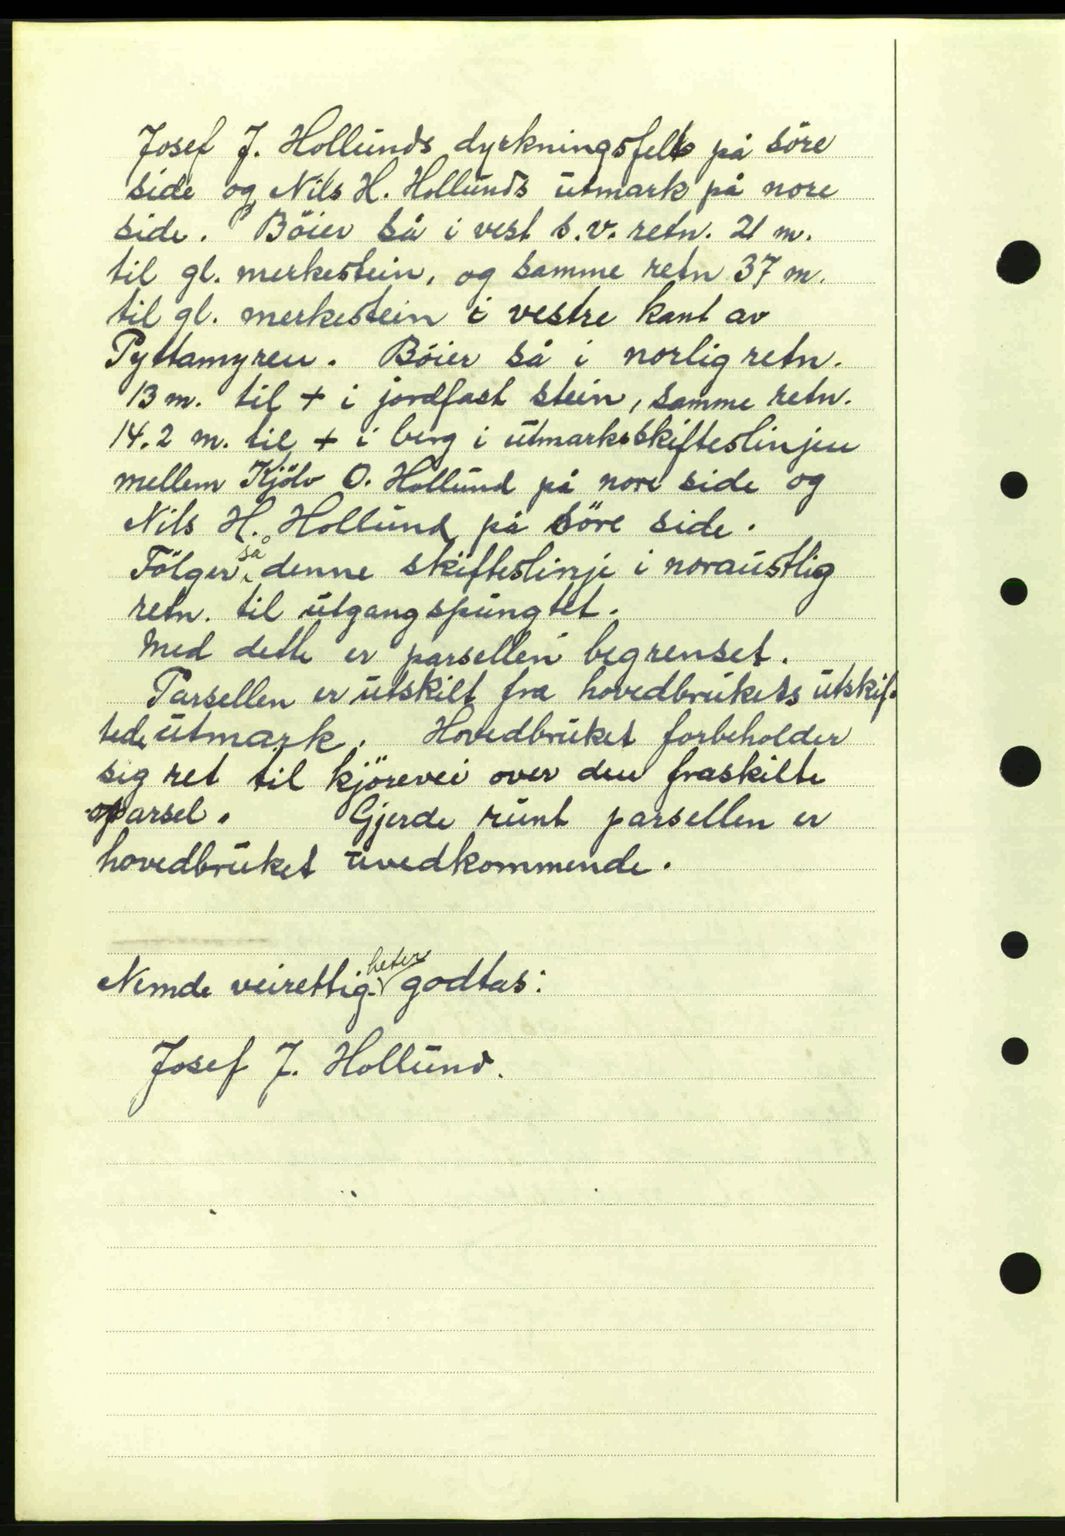 Josef J. Hollunds dyrkningsfelt på söre
side og Nils H. Hollunds utmark på nore
side. Böier så i vest s.v. retn. 21 m.
til gl. merkestein, og samme retn 37 m.
til gl. merkestein i vestre kant av
Pyttamyren. Böier så i norlig retn.
13 m. til + i jordfast stein, samme retn.
14.2 m. til + i berg i utmarksskifteslinjen
mellem Kjölv O. Hollund på nore side og
Nils H. Hollund på söre side.
Fölger så denne skifteslinje i noraustlig
retn. til utgangspungtet.
Med dette er parsellen begrenset.
Parsellen er utskilt fra hovedbrukets utskif-
tede utmark. Hovedbruket forbeholder
sig ret til kjörevei over den fraskilte
parsel. Gjerde runt parsellen er
hovedbruket uvedkommende.
Nemde veirettigheter godtas:
Josef J. Hollund.